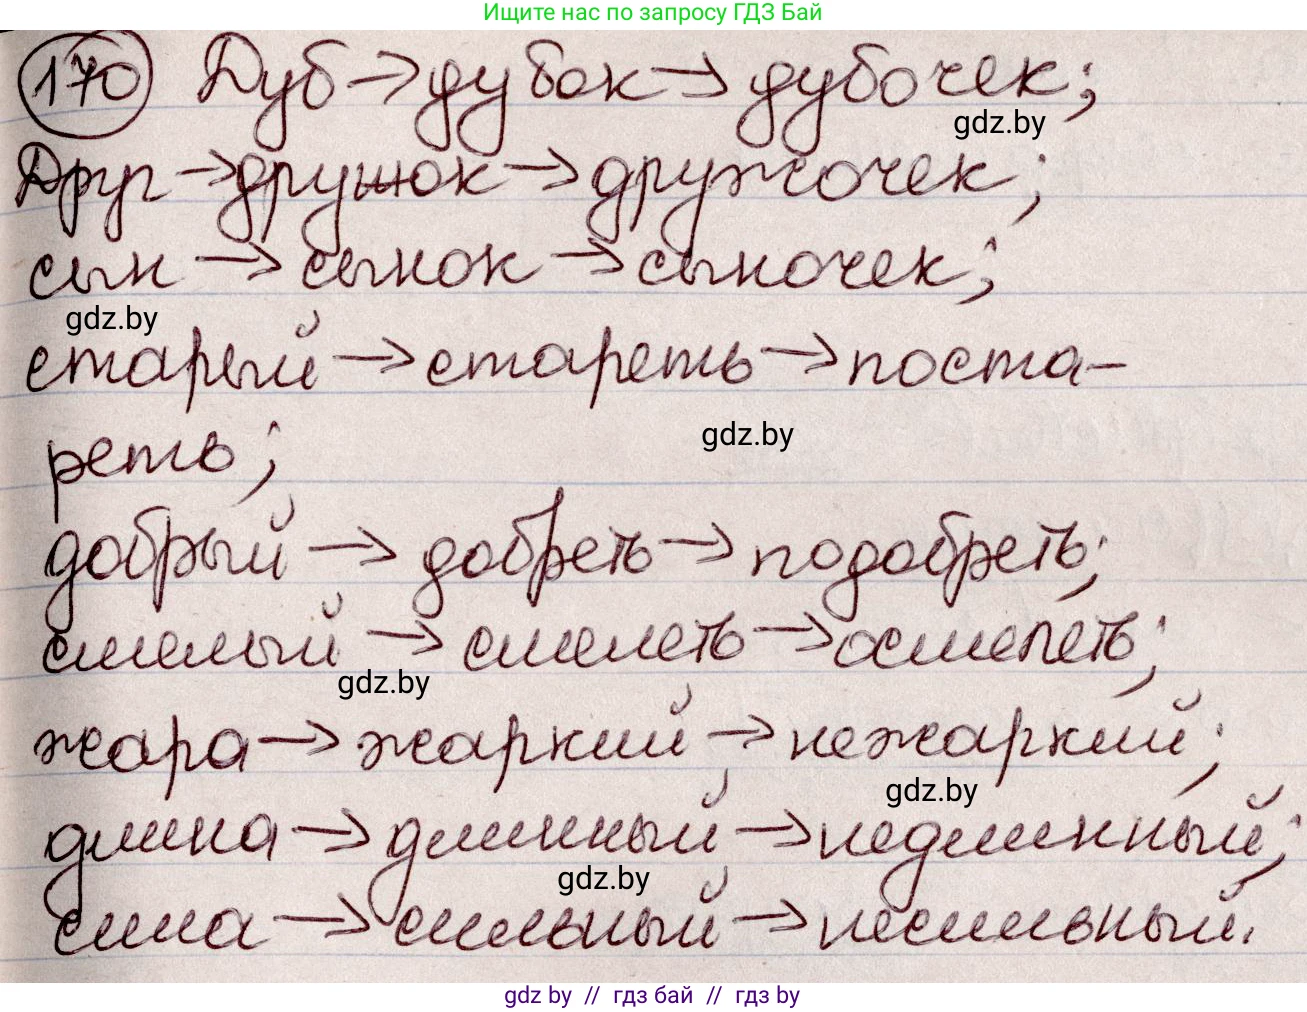 Ищите нас по запросу ГДЗ Бай
170 Дуб → дубок → дубочек;
gdz.by
Друг → дружок → дружочек;
сын → сынок → сыночек;
gdz.by
старый → стареть → поста-
gdz.by
реть;
добрый → добреть → подобреть;
смелый → смелеть → осмелеть;
gdz.by
жара → жаркий → нежаркий;
gdz.by
длина → длинный → недлинный;
gdz.by
сила → сильный → несильный.
gdz by // гдз бай // гдз by